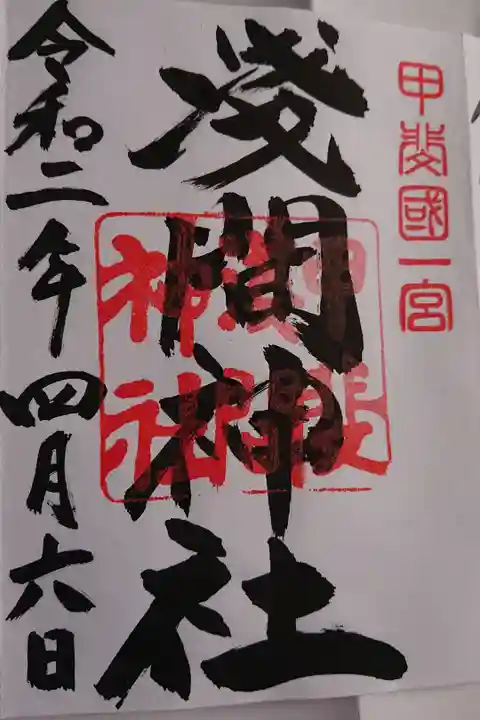 甲斐國一宮
淺間神社
甲斐
淺間
神社
令和二年四月六日